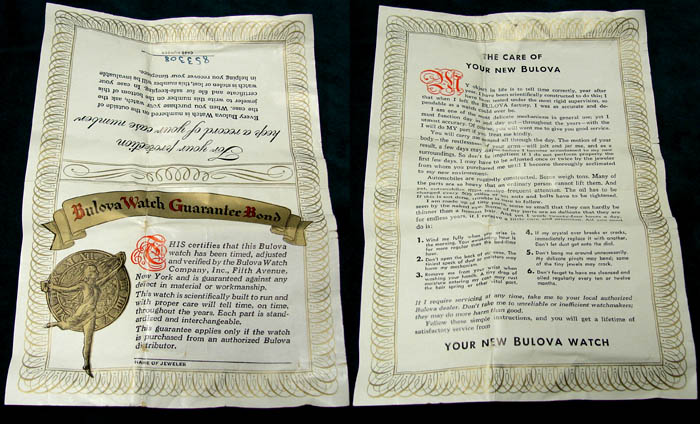 For your protection
keep a record of your case number
Every Bulova Watch is numbered on the outside of
the case. When you purchase your watch, ask the
jeweler to write the number on the bottom of this
certificate and file for safe-keeping. In case your
watch is stolen or lost, this number will be invaluable
in helping you recover your timepiece.
853308
CASE NUMBER
Bulova Watch Guarantee Bond
THIS certifies that this Bulova
watch has been timed, adjusted
and verified by the Bulova Watch
Company, Inc., Fifth Avenue,
New York and is guaranteed against any
defect in material or workmanship.
This watch is scientifically built to run and
with proper care will tell time, on time,
throughout the years. Each part is stand-
ardized and interchangeable.
This guarantee applies only if the watch
is purchased from an authorized Bulova
distributor.
NAME OF JEWELER
THE CARE OF
YOUR NEW BULOVA
MY object in life is to tell time correctly, year after
year. I have been scientifically constructed to do this; I
have been tested under the most rigid supervision, so
that when I left the BULOVA factory, I was as accurate and de-
pendable as a watch could ever be.
I am one of the most delicate mechanisms in general use; yet I
must function day in and day out—throughout the years—with the
utmost accuracy. Of course, you will want me to give you good service.
I will do MY part if you treat me kindly.
You will carry me around all through the day. The motion of your
body—the restlessness of your arms—will jolt and jar me, and as a
result, a few days may pass before I become accustomed to my new
surroundings. So don't be impatient if I do not perform properly the
first few days. I may have to be adjusted once or twice by the jeweler
from whom you purchased me until I become thoroughly acclimated
to my new environment.
Automobiles are ruggedly constructed. Some weigh tons. Many of
the parts are so heavy that an ordinary person cannot lift them. And
yet, automobiles must receive frequent attention. The oil has to be
changed every 500 miles or so; nuts and bolts have to be tightened.
If this is not done, trouble is sure to follow.
I am made up of tiny parts. Some so small that they can hardly be
seen by the naked eye. Some of my parts are so delicate that they are
thinner than a human hair. And yet I work twenty-four hours a day,
for endless years, if I receive a little care and attention. All you must
do is:
1. Wind me fully when you arise in
the morning. Your winding hour is
for more regular than the bed-time
hour.
2. Don't open the back of my case. The
tiniest speck of dust or moisture may
harm my mechanism.
3. Remove me from your wrist when
washing your hands. A tiny drop of
moisture entering my case may rust
the hair spring or other vital part.
4. If my crystal ever breaks or cracks,
immediately replace it with another.
Don't let dust get onto the dial.
5. Don't bang me around unnecessarily.
My delicate pivots may bend; some
of the tiny jewels may crack.
6. Don't forget to have me cleaned and
oiled regularly every ten or twelve
months.
If I require servicing at any time, take me to your local authorized
Bulova dealer. Don't take me to unreliable or inefficient watchmakers;
they may do more harm than good.
Follow these simple instructions, and you will get a lifetime of
satisfactory service from
YOUR NEW BULOVA WATCH